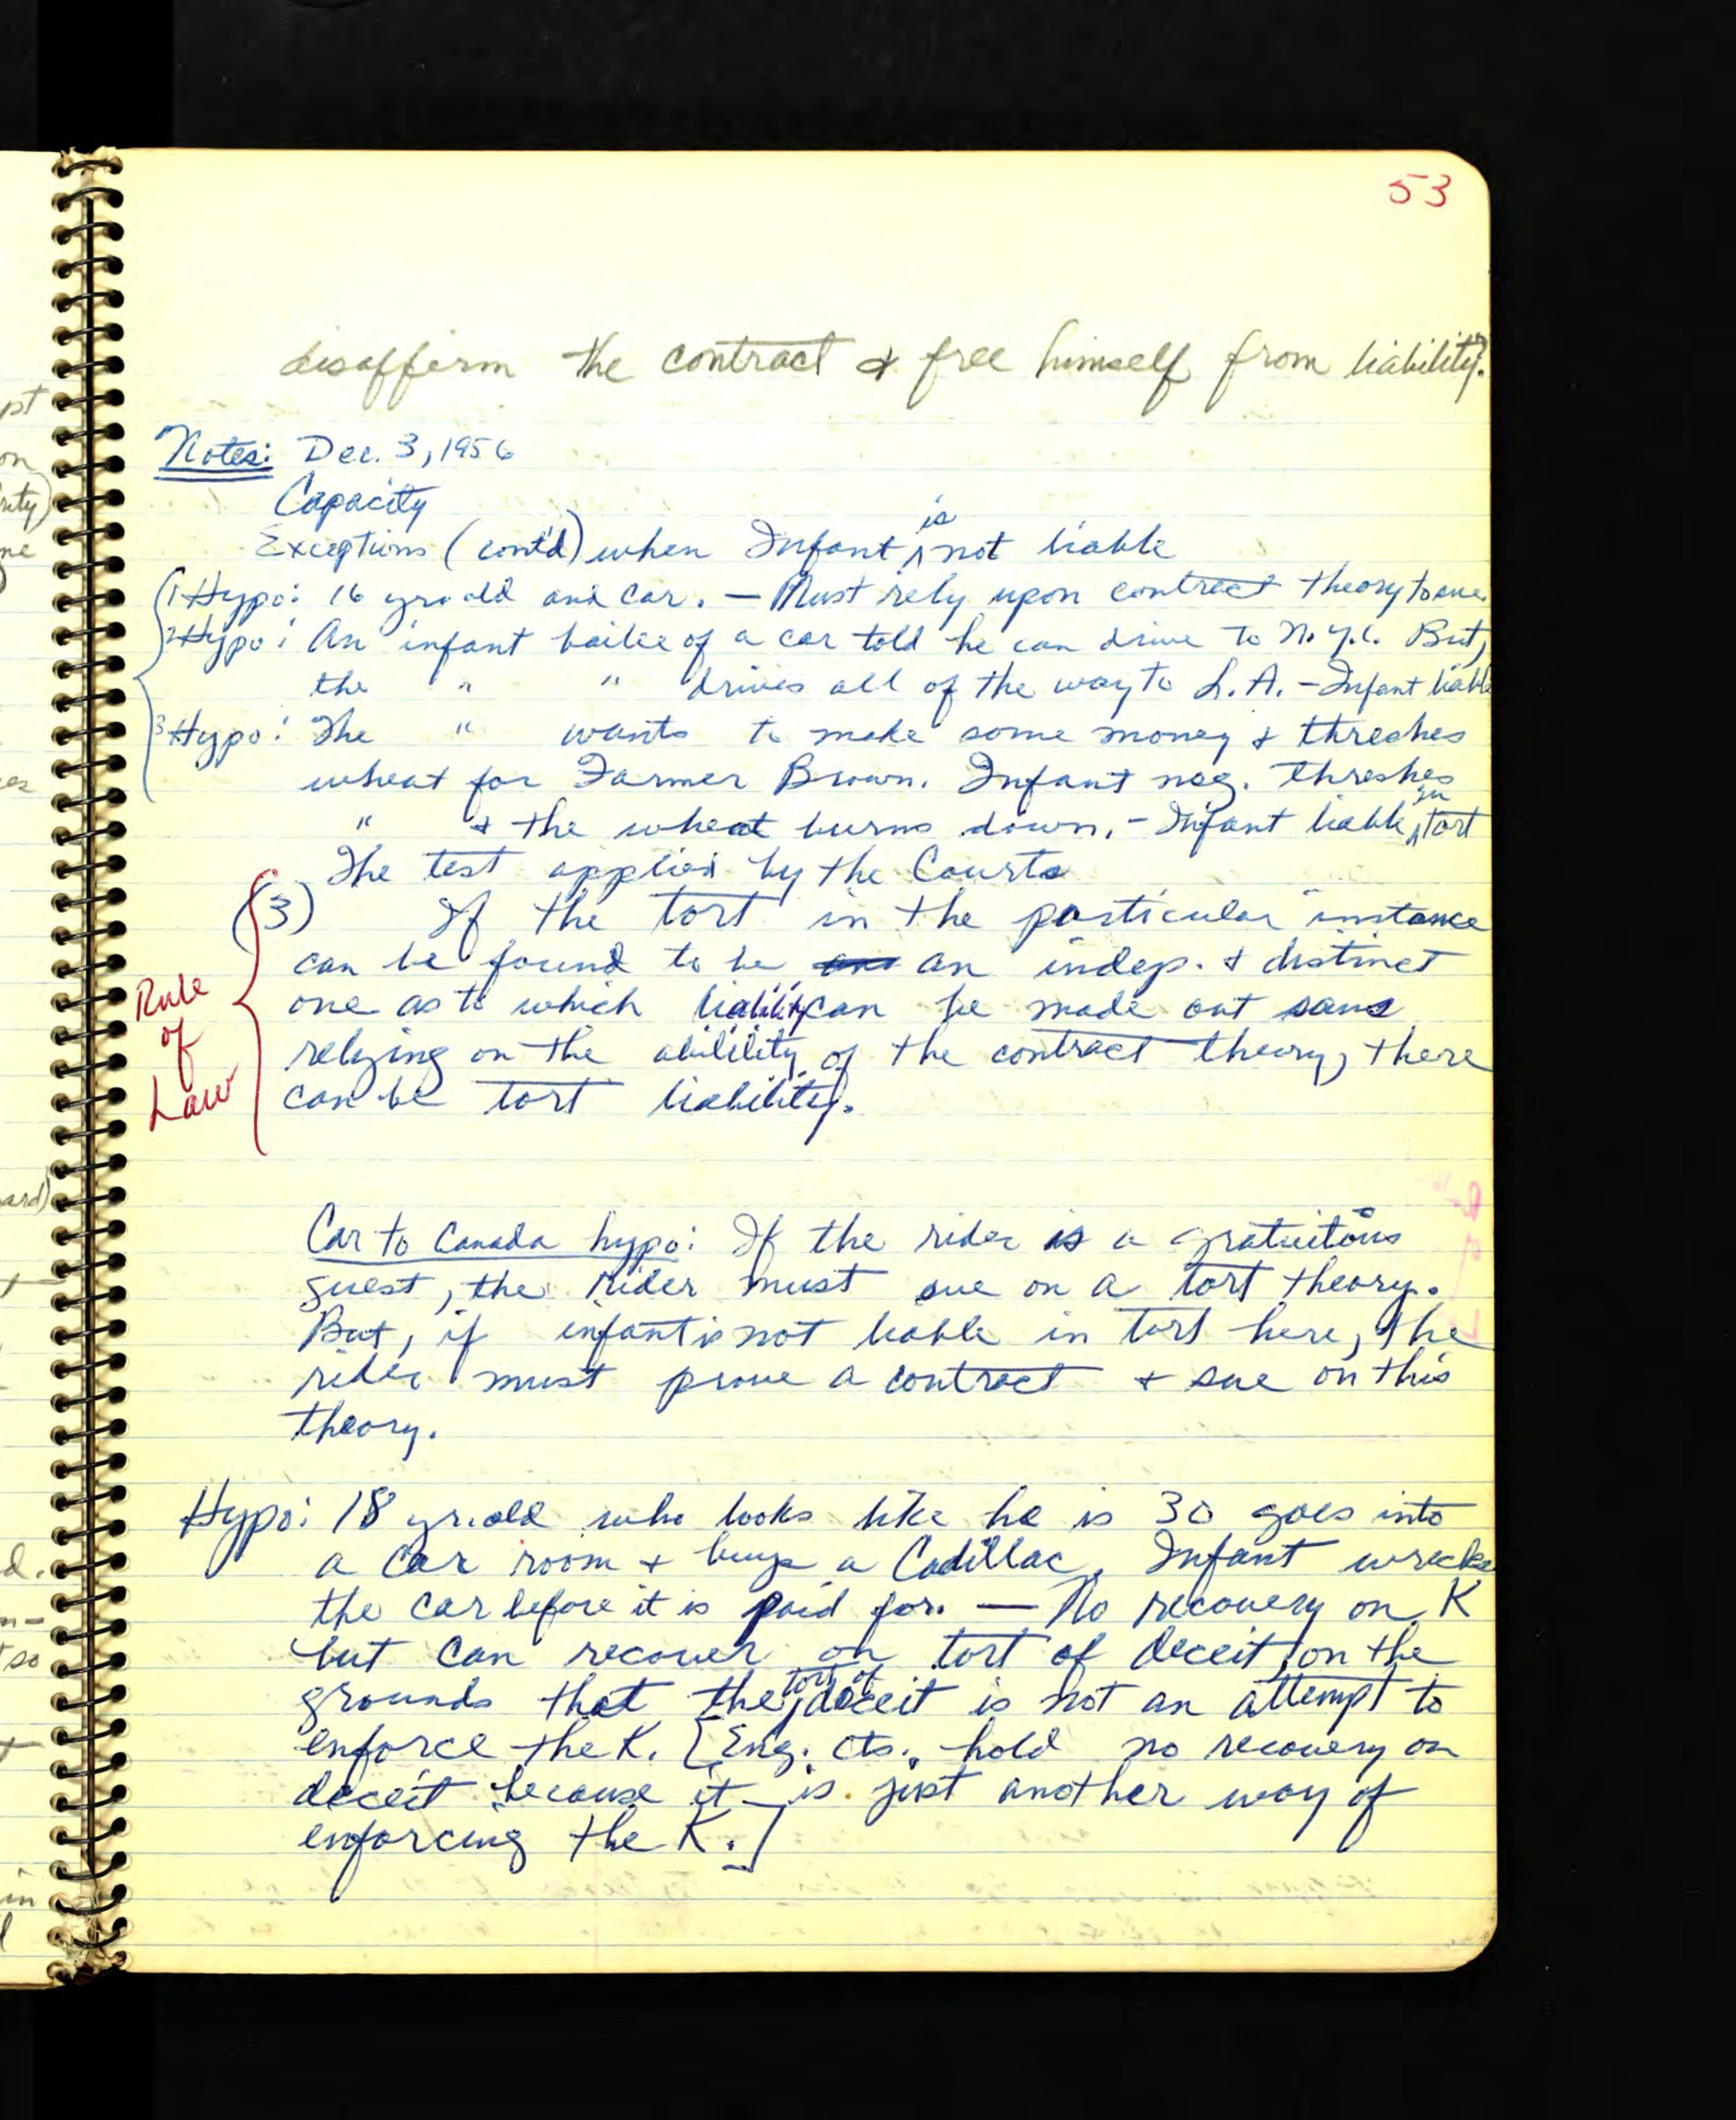 53
disaffirm the contract & free himself from liability."
Notes: Dec. 3, 1956
Capacity
Exceptions (cont'd) when Infant is not liable
(1 Hypo: 16 yr. old and car. — Must rely upon contract theory to sue.
2 Hypo: An infant bailee of a car told he can drive to N.Y.C. But,
the " " drives all of the way to L.A. - Infant liable
3 Hypo: The " wants to make some money & threshes
wheat for Farmer Brown. Infant neg. threshes
" & the wheat burns down. - Infant liable in tort
The test applied by the Courts
(3) If the tort in the particular instance
can be found to be an indep. & distinct
one as to which liability can be made out sans
relying on the abilility of the contract theory, there
can be tort liability.
Rule
of
Law
Car to Canada hypo: If the rider is a gratuitous
guest, the rider must sue on a tort theory.
But, if infant is not liable in tort here, the
rider must prove a contract & sue on this
theory.
Hypo: 18 yr. old who looks like he is 30 goes into
a car room & buys a Cadillac. Infant wrecks
the car before it is paid for. — No recovery on K
but can recover on tort of deceit, on the
grounds that the tort of deceit is not an attempt to
enforce the K. [Eng. cts. hold no recovery on
deceit because it is just another way of
enforcing the K.]
pt
on
ne
ard)
d.
so
in